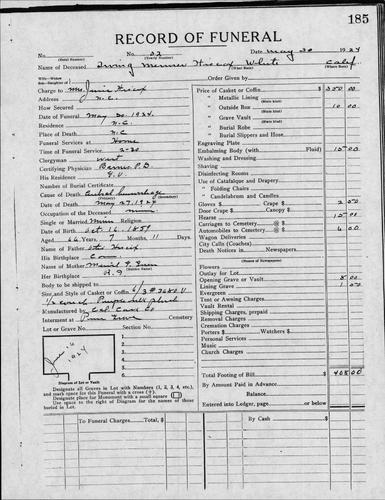 185
RECORD OF FUNERAL
No. No. 32 Date May 30 1924
(Yearly Number)
Name of Deceased Irving White Calif.
(What Race) (Where Born)
Wife—Widow
Son—Daughter of Order Given by
Charge to Mrs. Price of Casket or Coffin
Address N.C. " Metallic Lining
(State kind)
How Secured " Outside Box 10 00
(State kind)
Date of Funeral May 30, 1924. " Grave Vault
(State kind)
Residence N.C. " Burial Robe
(State kind)
Place of Death N.C. " Burial Slippers and Hose
Funeral Services at Home Engraving Plate
Time of Funeral Service 2-30 Embalming Body (with Fluid) 15 00
Clergyman West Washing and Dressing
Certifying Physician Shaving
His Residence Disinfecting Rooms
Number of Burial Certificate Use of Catafalque and Drapery
Cause of Death " Folding Chairs
(Primary) (Secondary)
Date of Death May 27, 1924 " Candelabrum and Candles
Occupation of the Deceased Gloves $ Crape $ 2 00
Single or Married Religion Door Crape $ Canopy $
Date of Birth Oct 16, 1859 Hearse 15 00
Aged 64 Years, 7 Months, 11 Days. Carriages to Cemetery @ $
Name of Father Automobiles to Cemetery @ $
His Birthplace Conn. Wagon Deliveries
Name of Mother City Calls (Coaches)
(Maiden Name)
Her Birthplace Death Notices in Newspapers
Body to be shipped to Flowers
Size and Style of Casket or Coffin Outlay for Lot
Opening Grave or Vault 8 00
Lining Grave
Manufactured by Evergreen
Interment at Pine Grove Cemetery Tent or Awning Charges
Lot or Grave No. Section No. Vault Rental
Shipping Charges, prepaid
Removal Charges
Cremation Charges
Porters $ Watchers $
Personal Services
Music
Church Charges
1.
2.
3.
4.
5.
6.
June 16
1924
Diagram of Lot or Vault
Total Footing of Bill $ 408 00
By Amount Paid in Advance
Balance.
Entered into Ledger, page or below.
Designate all Graves in Lot with Numbers (1, 2, 3, 4, etc.),
and mark space for this Funeral with a cross (+).
Designate place for Monument with a small square
Use space to the right of Diagram for the names of those
buried in Lot.
To Funeral Charges Total, $ By Cash $